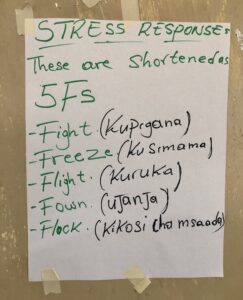 STRESS RESPONSES
These are Shortened as
5Fs
- Fight. (Kupigana)
- Freeze (Kusimama)
- Flight. (Kuruka)
- Fown. (Ujanja)
- Flock. (Kikosi cha msaada)